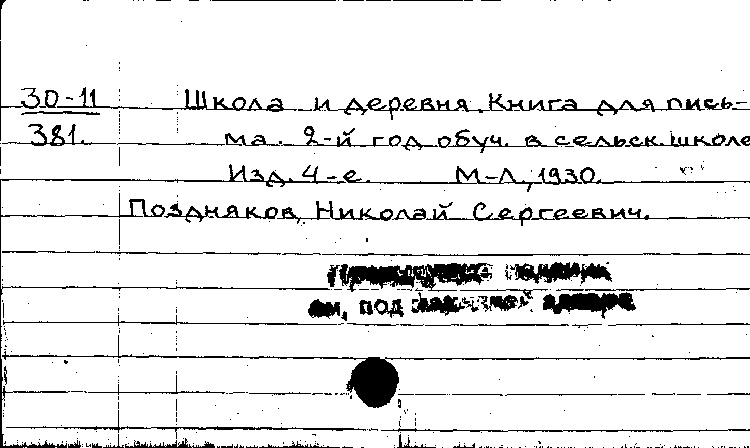 30-11 Школа и деревня. Книга для пись-
381. ма. 2-й год обуч. в сельск. школе
Изд. 4-е. М-Л., 1930.
Поздняков, Николай Сергеевич.
см. под